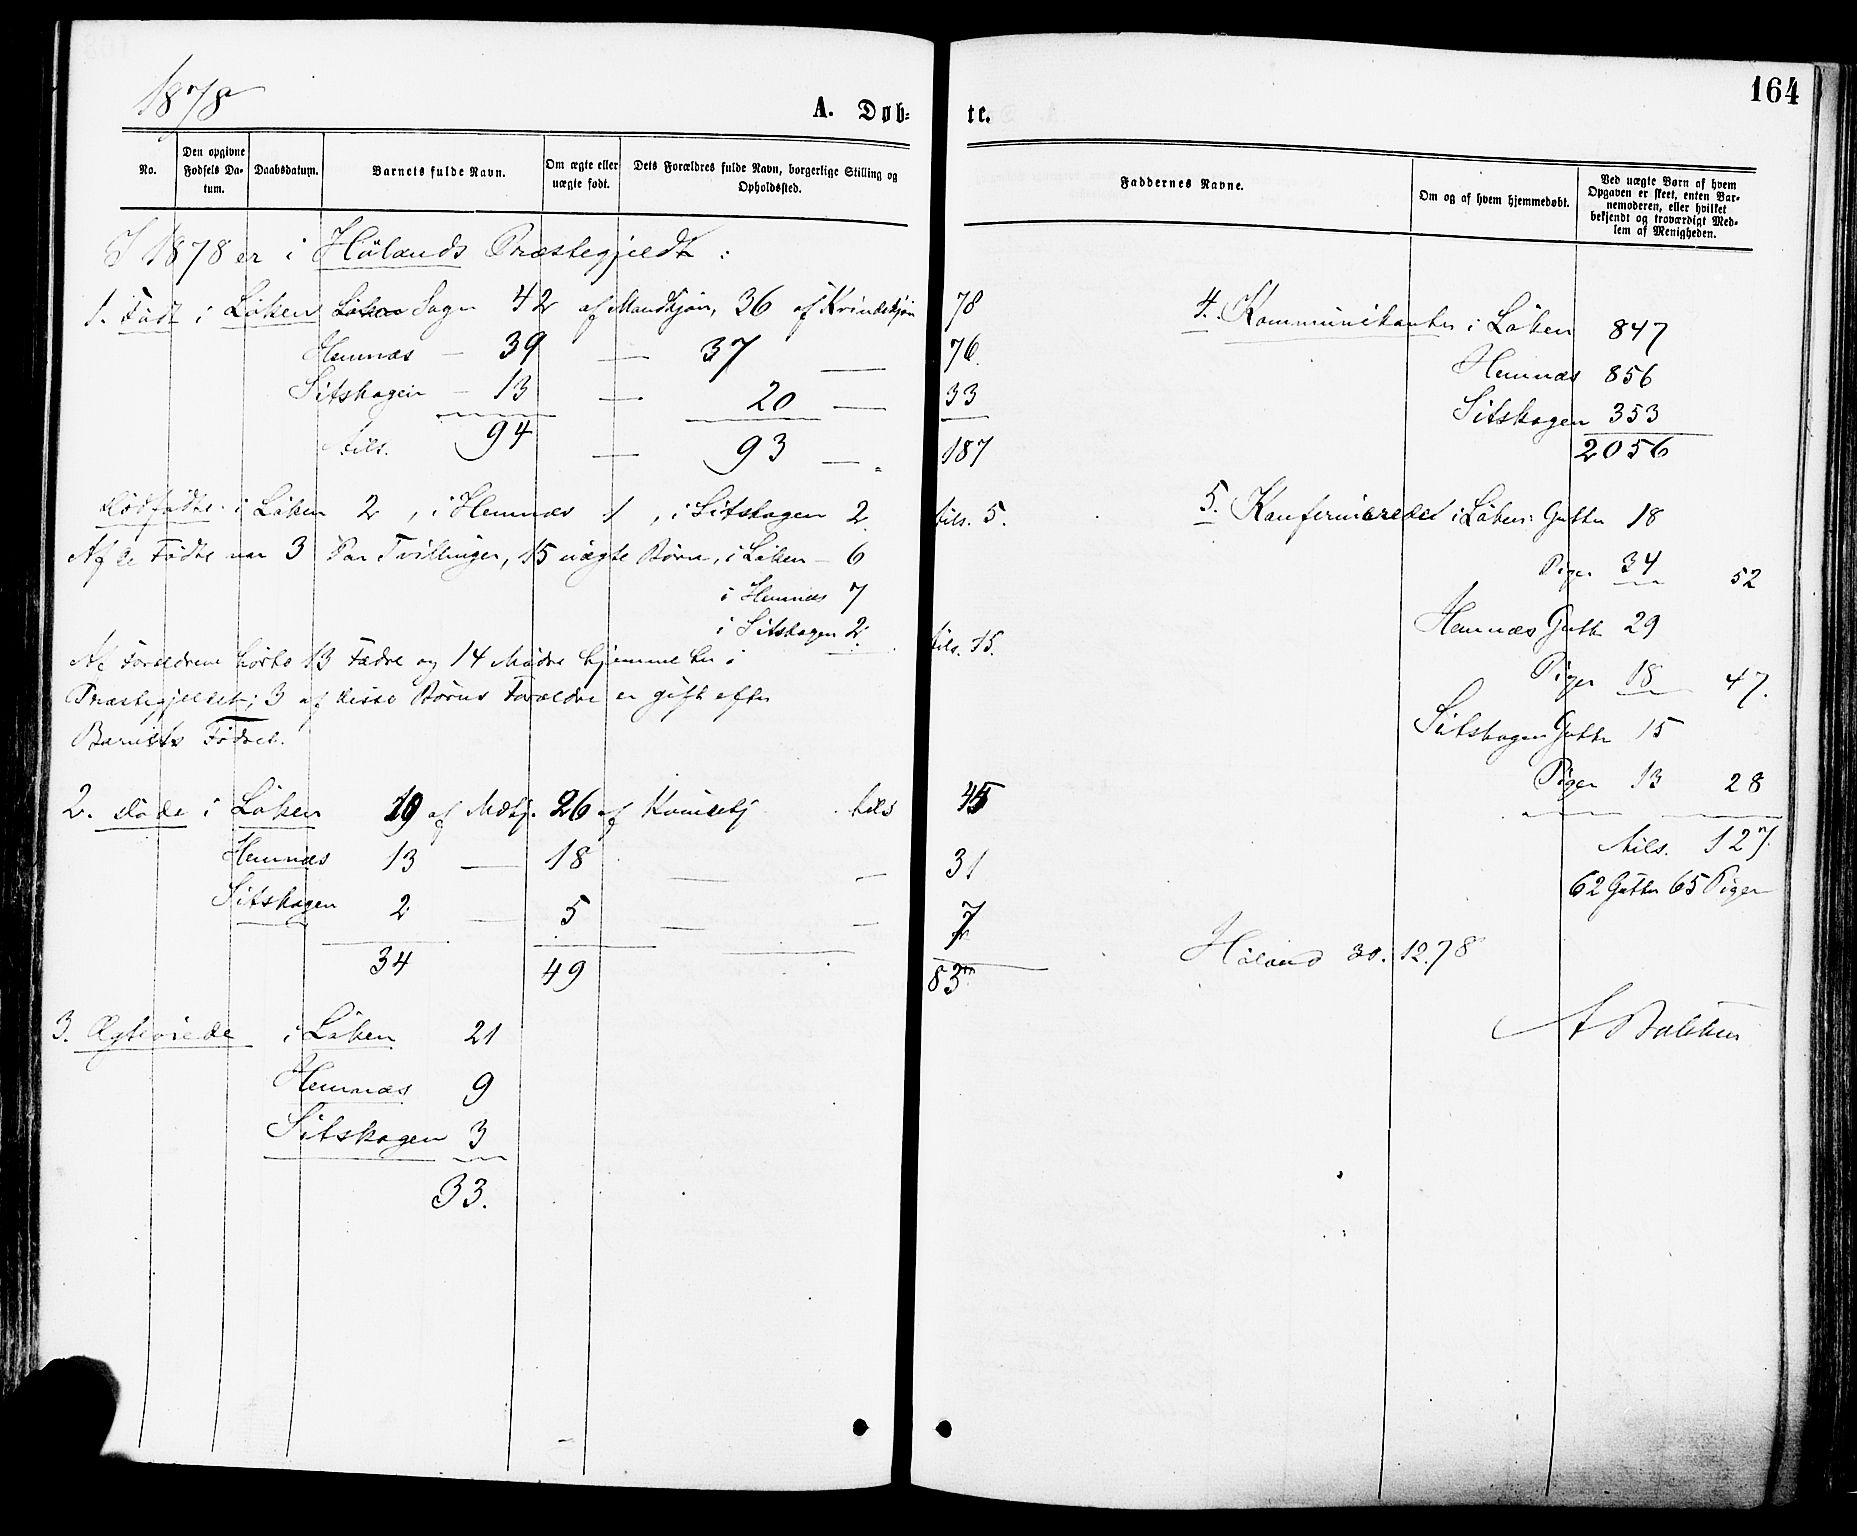 1878
A. Døb-
No.
Den opgivne Fødsels Da-
tum.
Daabsdatum.
Barnets fulde Navn.
Om ægte eller
uægte født.
Dets Forældres fulde Navn, borgerlige Stilling og
Opholdssted.
I 1878 er i Hølands Præstegjeld :
1. Født i Løken Løken Sogn 42 af Mandkjøn, 36 af Kvindekjøn 78
Hemnæs — 39 — 37 — 76.
Sitskogen — 13 — 20 — 33
tils. 94 — 93 — „ 187
Dødfødte i Løken 2, i Hemnæs 1, i Sitskogen 2 tils. 5.
Af de Fødte var 3 Par Tvillinger, 15 uægte Børn, i Løken — 6
i Hemnæs 7
i Sitskogen 2. tils. 15.
Af Forældrene hørte 13 Fædre og 14 Mødre hjemme her i
Præstegjeldet; 3 af disse Børns Forældre er gift efter
Barnets Fødsel.
2. Døde i Løken 19 af Mdkj. 26 af Kvindekj tils 45
Hemnæs 13 — 18 — — 31
Sitskogen 2 — 5 — — 7
34 49 83
3. Ægteviede i Løken 21
Hemnæs 9
Sitskogen 3
33.
164
te.
Faddernes Navne.
Om og af hvem hjemmedøbt.
Ved uægte Børn af hvem
Opgaven er skeet, enten Bar-
nemoderen, eller hvilket
bekjendt og troværdigt Med-
lem af Menigheden.
4. Kommunikanter i Løken 847
Hemnæs 856
Sitskogen 353
2056
5. Konfirmerede i Løken: Gutter 18
Piger 34 52
Hemnæs Gutter 29
Piger 18 47.
Sitskogen Gutter 15
Piger 13 28
tils. 127.
62 Gutter 65 Piger
Høland 30.12.78